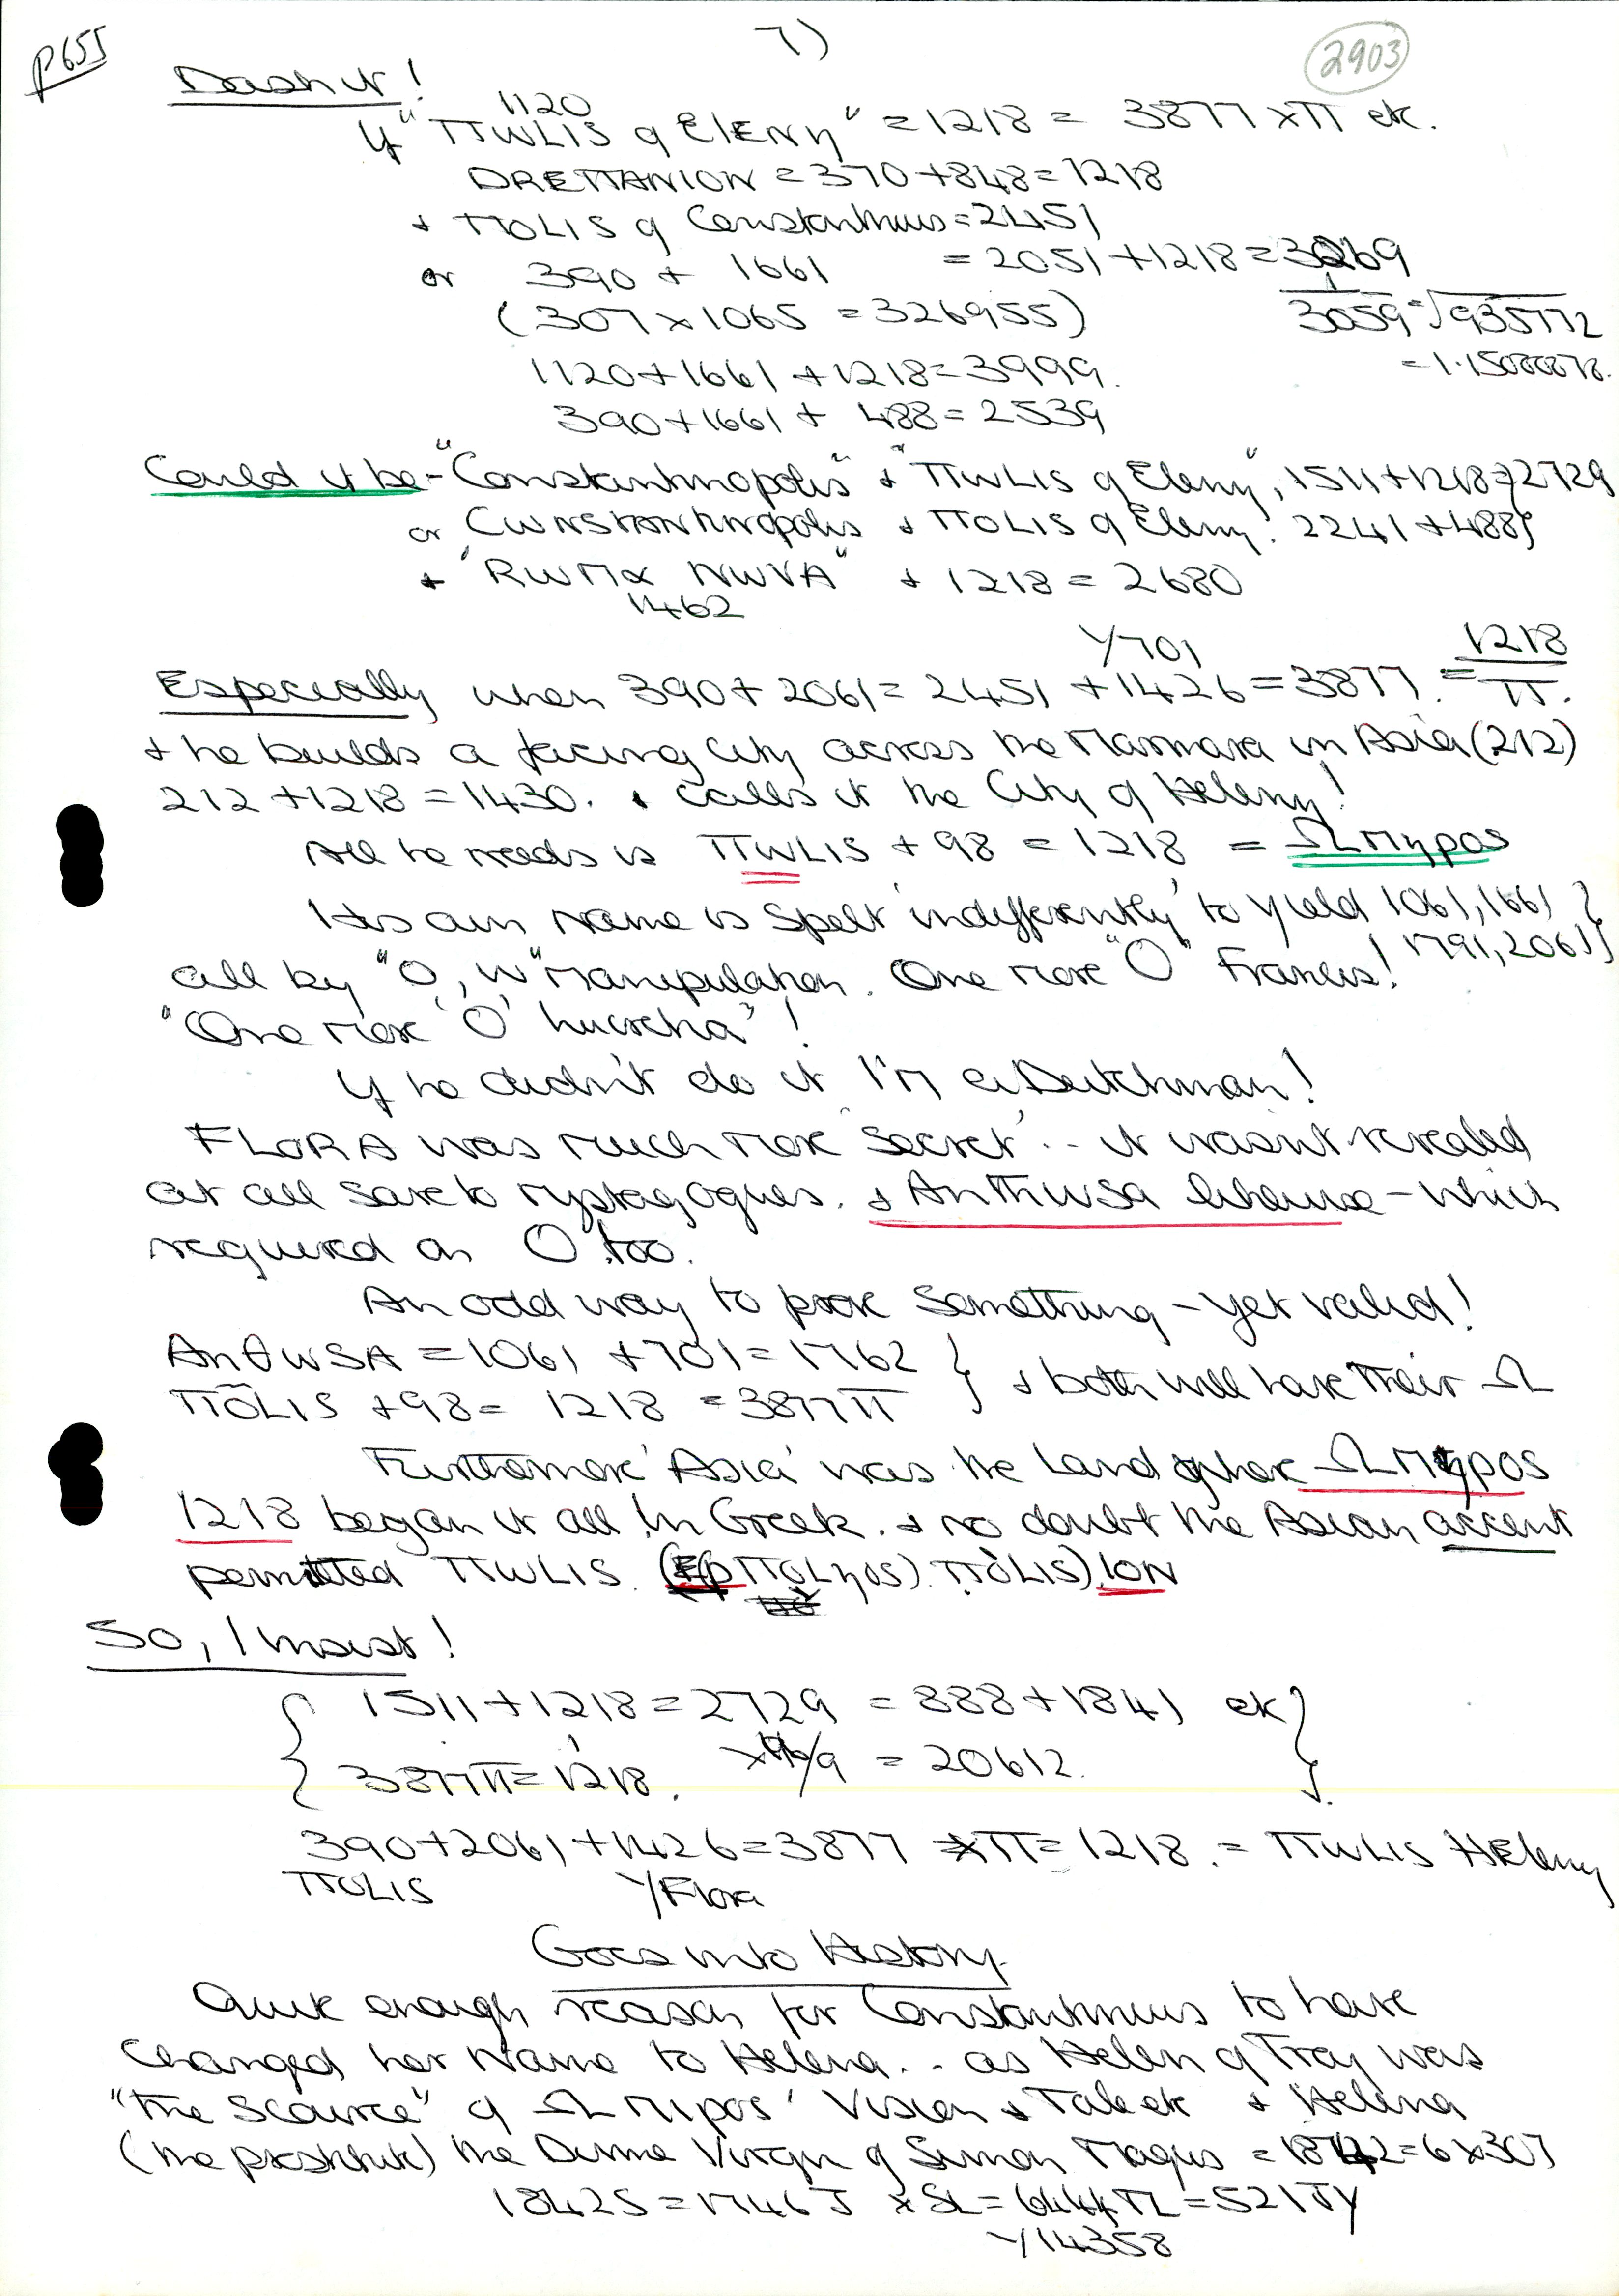 p655
7)
2903
Dash it!
1120
If "ΠWLIS of ElENη" = 1218 = 3877 x Π etc.
DREΠANION = 370 + 848 = 1218
+ ΠOLIS of Constantinus = 2451
or 390 + 1661 = 2051 + 1218 = 3269
(307 x 1065 = 326955)
1/3059 = √935772
= 1.15088878.
1120 + 1661 + 1218 = 3999.
390 + 1661 + 488 = 2539
Could it be - "Constantinopolis" + "ΠWLIS of Eleny", 1511 + 1218 = 2729
or CWNSTANTINopolis + ΠOLIS of Eleny. 2241 + 488}
+ "RWMα NWVA" + 1218 = 2680
1462
Y701
Especially when 390 + 2061 = 2451 + 1426 = 3877. = 1218/Π.
+ he builds a facing City across the Marmara in Asia (212)
212 + 1218 = 1430. + calls it the City of Heleny!
All he needs is ΠWLIS + 98 = 1218 = ΩMηρος
His own name is spelt 'indifferently' to yield 1061, 1661 }
1791, 2061 }
all by "O, W" manipulation. One more "O" Francis!
"One more 'O' !
If he didn't do it I'm a Dutchman!
FLORA was much more 'secret' .. it wasn't revealed
at all save to mystagogues. + AnThWSa likewise - which
required an O too.
An odd way to prove something - yet valid!
AnθWSA = 1061 + 701 = 1762 }
ΠŌLIS + 98 = 1218 = 3877Π } + both will have their Ω
Furthermore 'Asia' was the land where ΩMηρος
1218 began it all in Greek. + no doubt the Asian accent
permitted ΠWLIS. ΠÒLIS) ION
So, I insist!
{ 1511 + 1218 = 2729 = 888 + 1841 etc }
{ 3877Π = 1218. /9 = 20612. }
390 + 2061 + 1426 = 3877 xΠ = 1218. = ΠWLIS HEleny
ΠOLIS Y/Flora
Goes into History.
Quite enough reason for Constantinus to have
changed her Name to Helena .. as Helen of Troy was
"the source" of ΩMηρος' Vision + Tale etc + Helena
(the prostitute) the Divine Virgin of Simon Magus = 1842 = 6 x 307
1842S = 1746J x SL = 6444TL = 521JY
Y14358